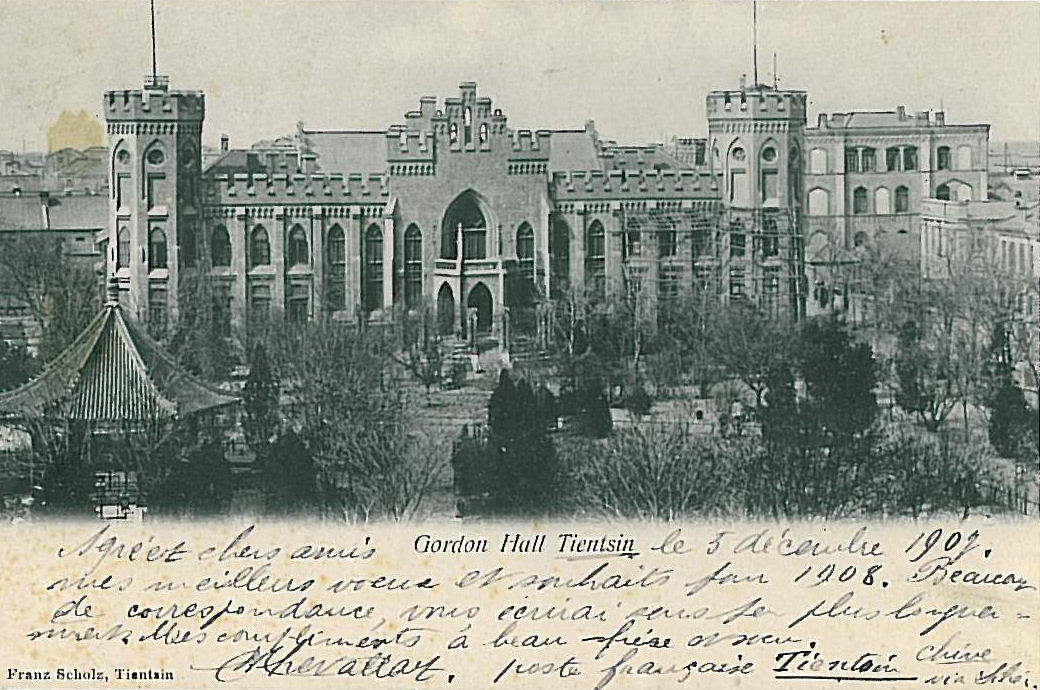 Agréez chers amis Gordon Hall Tientsin le 5 décembre 1907.
mes meilleurs voeux et souhaits pour 1908. Beaucoup
de correspondance, vous écrirai sous peu plus longue-
ment. Mes compliments à beau-frère et
Chevallay. poste française Tientsin Chine
Franz Scholz, Tientsin via